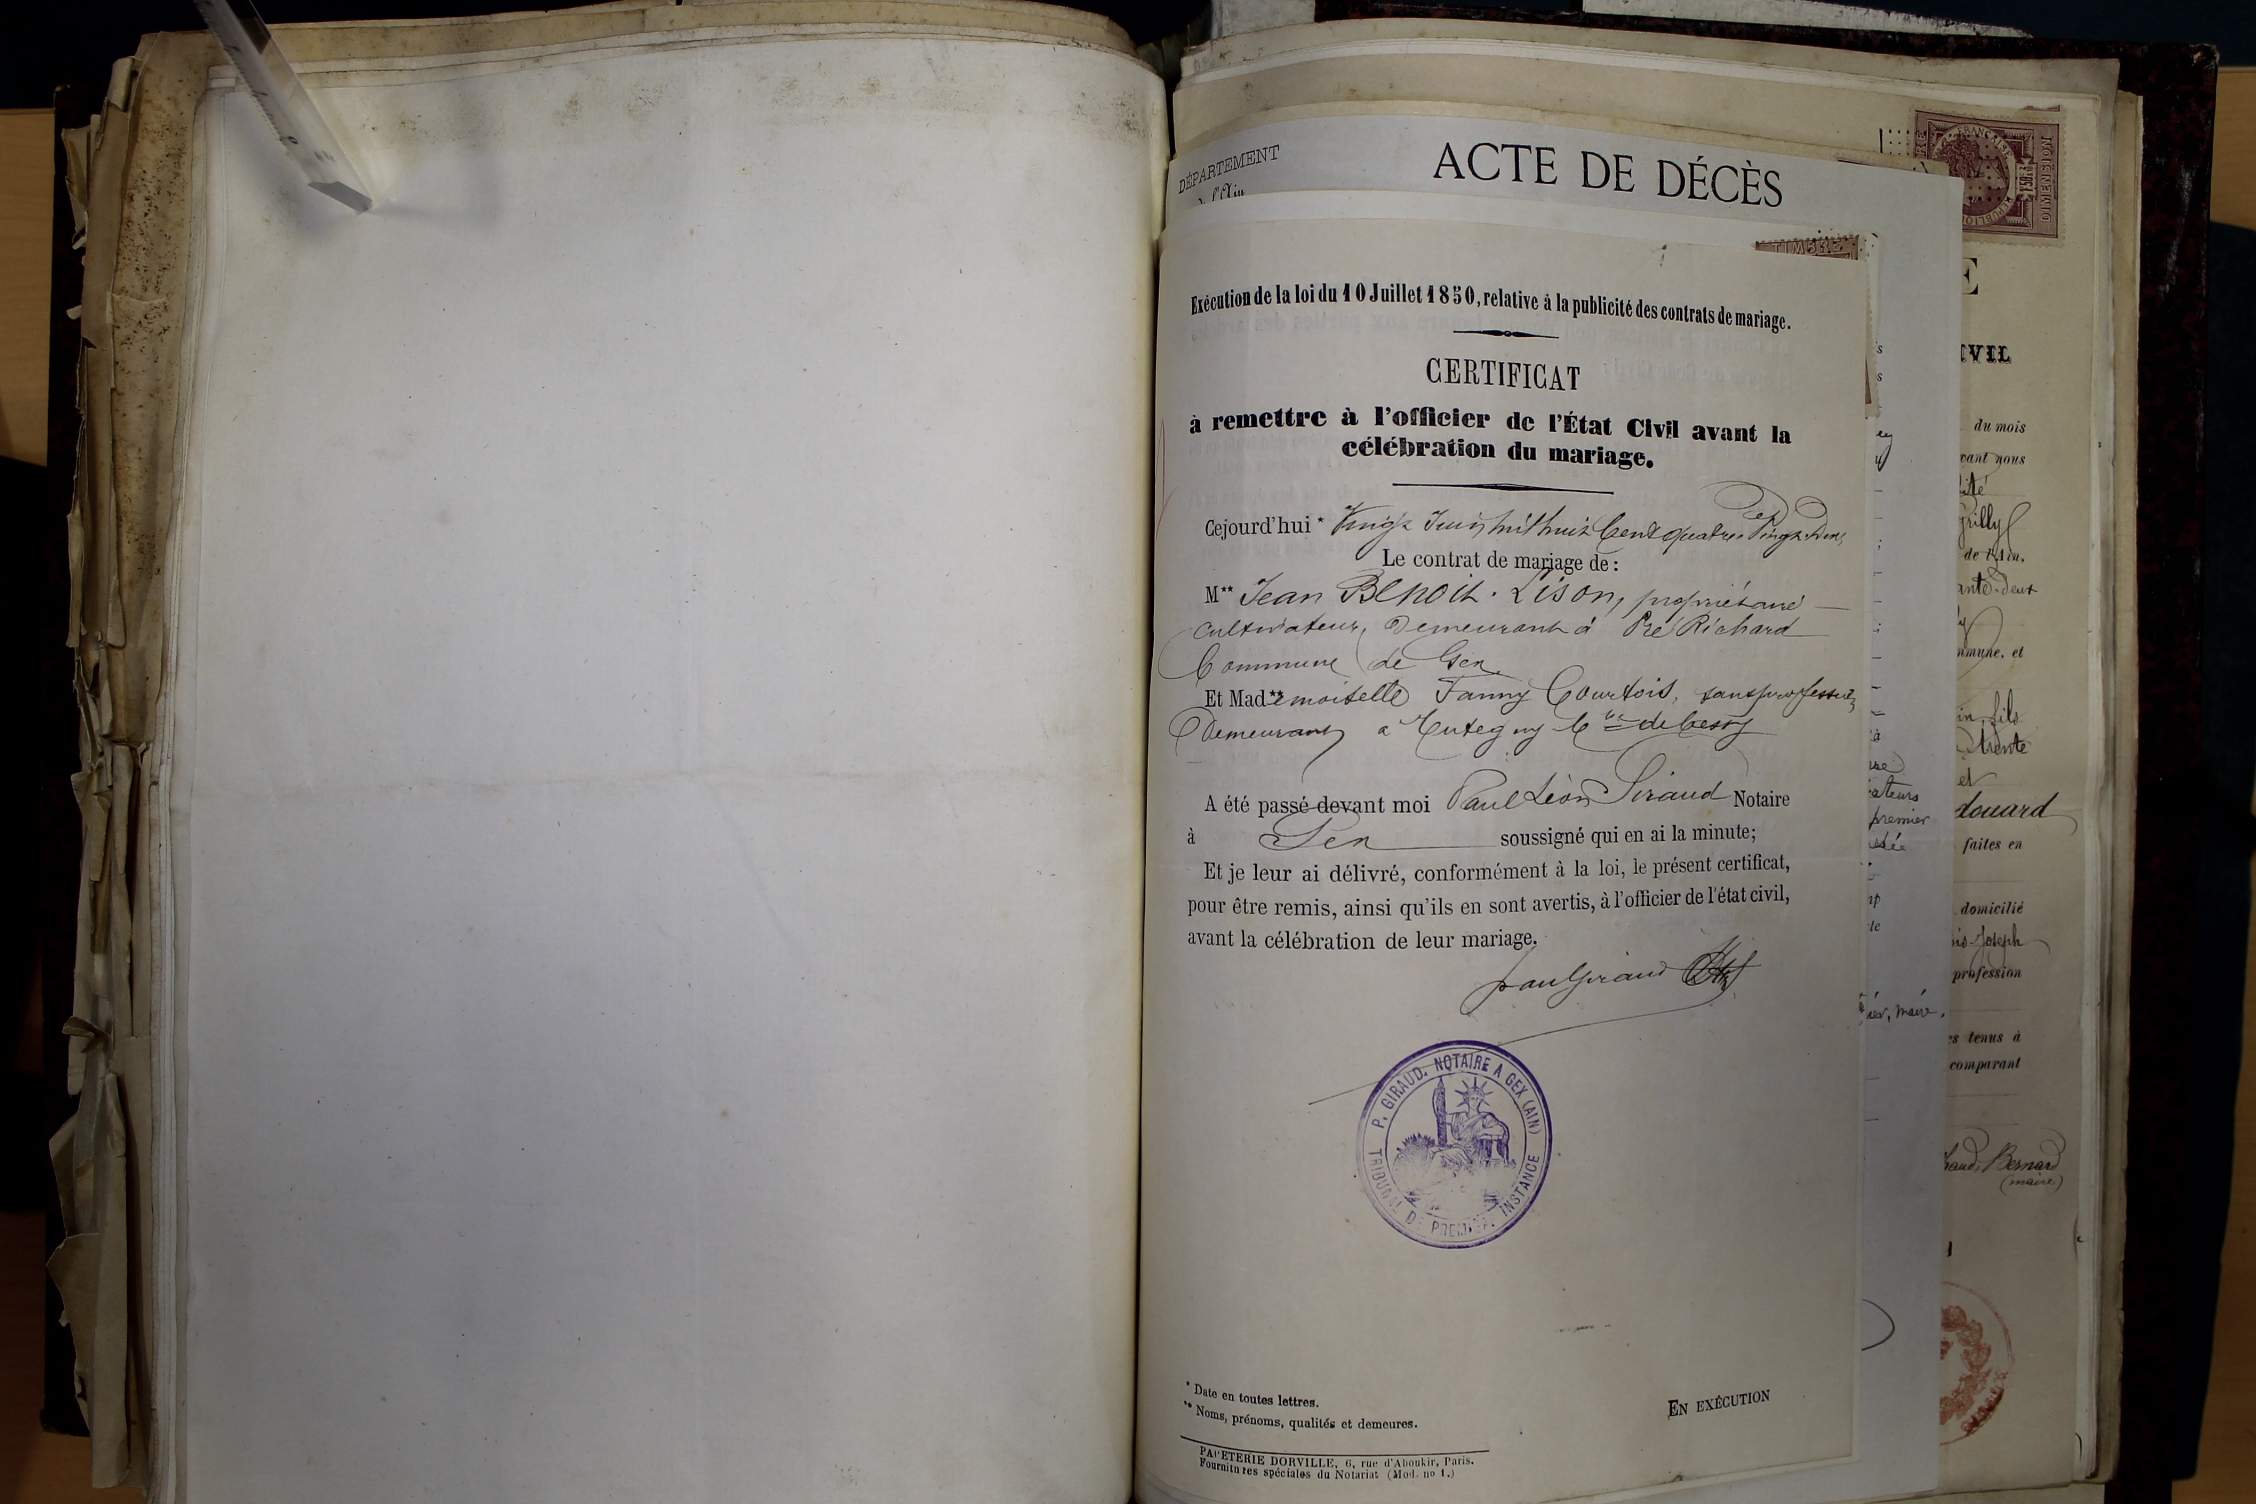 DÉPARTEMENT
de l'Ain
ACTE DE DÉCÈS
Exécution de la loi du 10 Juillet 1850, relative à la publicité des contrats de mariage.
CERTIFICAT
à remettre à l'officier de l'État Civil avant la
célébration du mariage.
Cejourd'hui * Vingt Juin mil huit Cent quatre Vingt
Le contrat de mariage de :
M** Jean Benoit Lison, propriétaire
cultivateur, Demeurant à Pré Richard
Commune de Gex
Et Mad**emoiselle Fanny Courtois, sans profession
Demeurant a Cutegny Cne de Cessy
A été passé devant moi Paul Léon Giraud Notaire
à Gex soussigné qui en ai la minute;
Et je leur ai délivré, conformément à la loi, le présent certificat,
pour être remis, ainsi qu'ils en sont avertis, à l'officier de l'état civil,
avant la célébration de leur mariage.
Paul Giraud
P. GIRAUD. NOTAIRE A GEX (AIN)
TRIBUNAL DE PREMIÈRE INSTANCE
* Date en toutes lettres.
** Noms, prénoms, qualités et demeures.
EN EXÉCUTION
PAPETERIE DORVILLE, 6, rue d'Aboukir, Paris.
Fournitures spéciales du Notariat (Mod. no 1.)
TIMBRE
ateurs
premier
maire.
DIMENSION
E
IVIL
du mois
vant nous
de l'Ain.
ante-deux
mmune, et
fils
trente
et
douard
faites en
domicilié
is-Joseph
profession
es tenus à
comparant
Bernard
(maire)